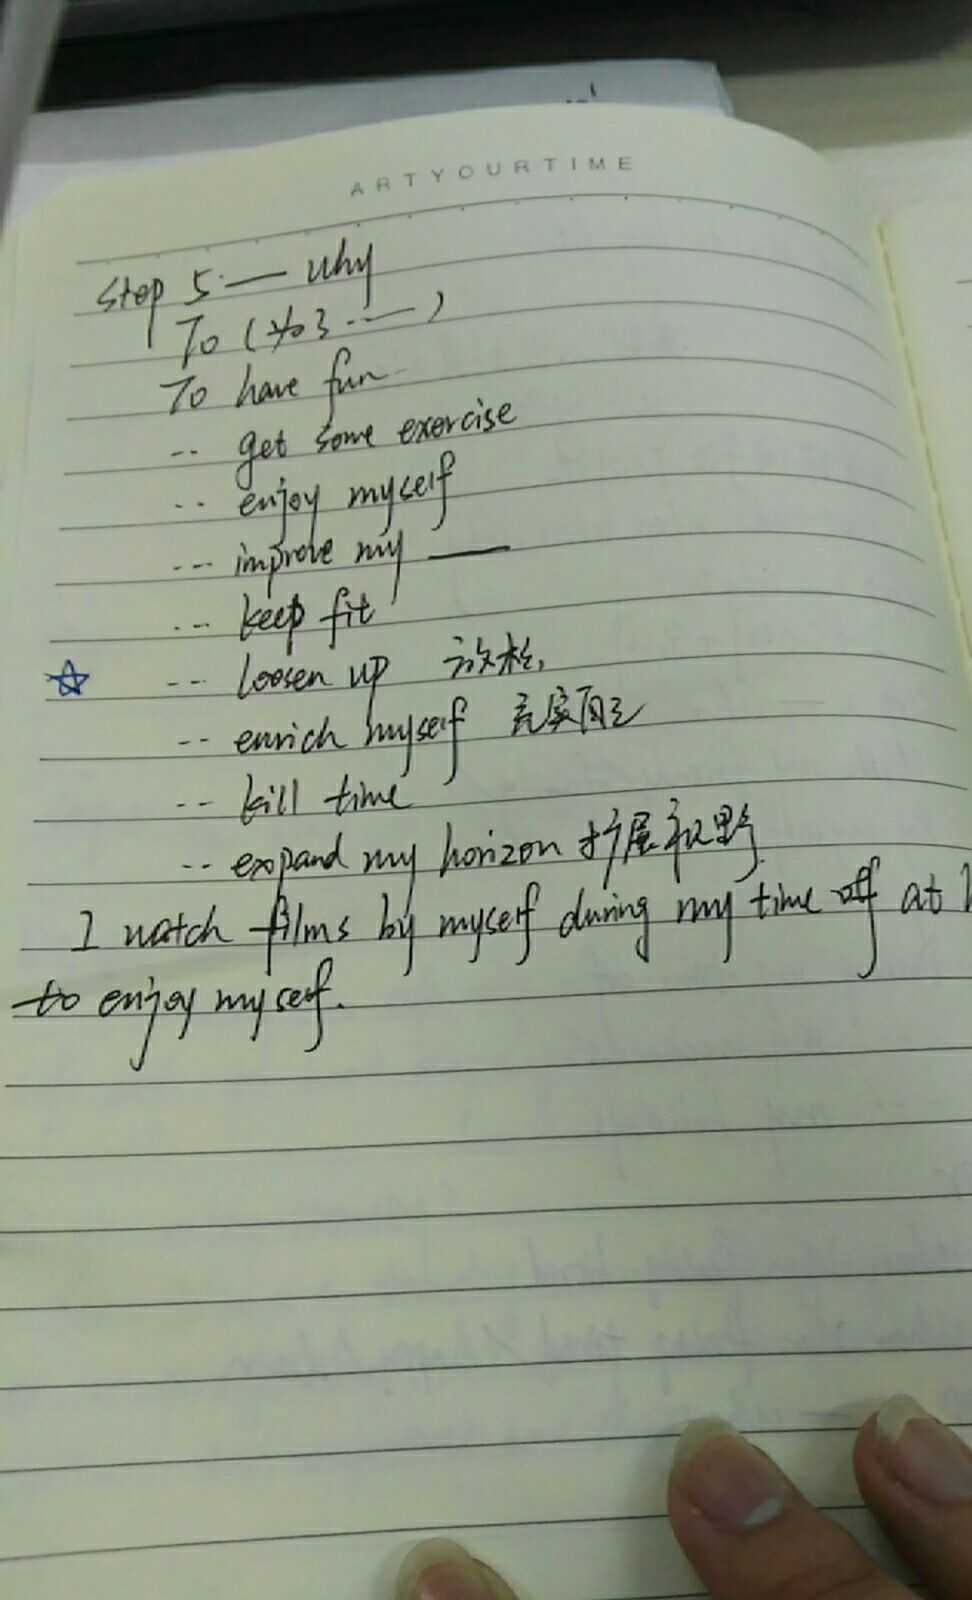 ARTYOURTIME
Step 5 — why
To (为了 ·—)
To have fun
-- get some exercise
-- enjoy myself
--- improve my ——
-- keep fit
☆ -- loosen up 放松
-- enrich myself 充实自己
-- kill time
-- expand my horizon 扩展视野
I watch films by myself during my time off at
to enjoy myself.